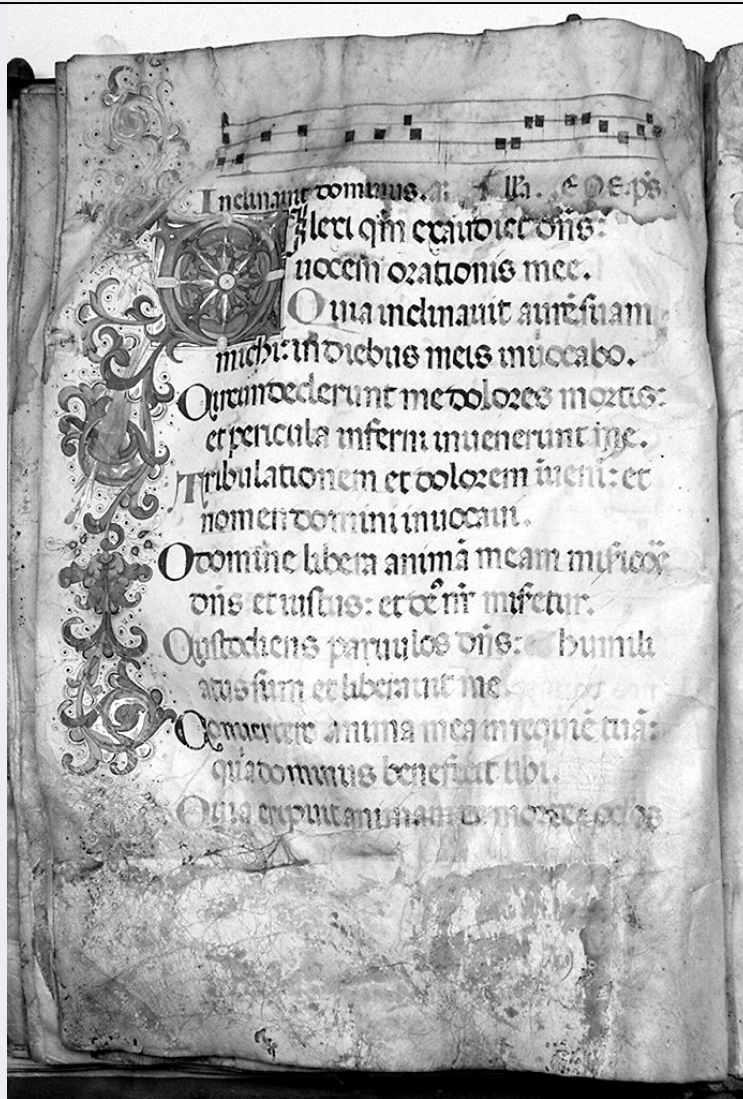 Inclinauit dominus. E O E. ps
Ilexi qm̄ exaudiet dn̄s:
uocem orationis mee.
Quia inclinauit aurē suam
michi: in diebus meis inuocabo.
Circundederunt me dolores mortis:
et pericula inferni inuenerunt me.
Tribulationem et dolorem īueni: et
nomen domini inuocaui.
O domine libera animā meam misicor̄
dn̄s et iustus: et de' nr̄ misetur.
Custodiens paruulos dn̄s: humili
atus sum et liberauit me
Conuertere anima mea in requiē tuā:
quia dominus benefecit tibi.
Quia eripuit animam de morte oc̄los